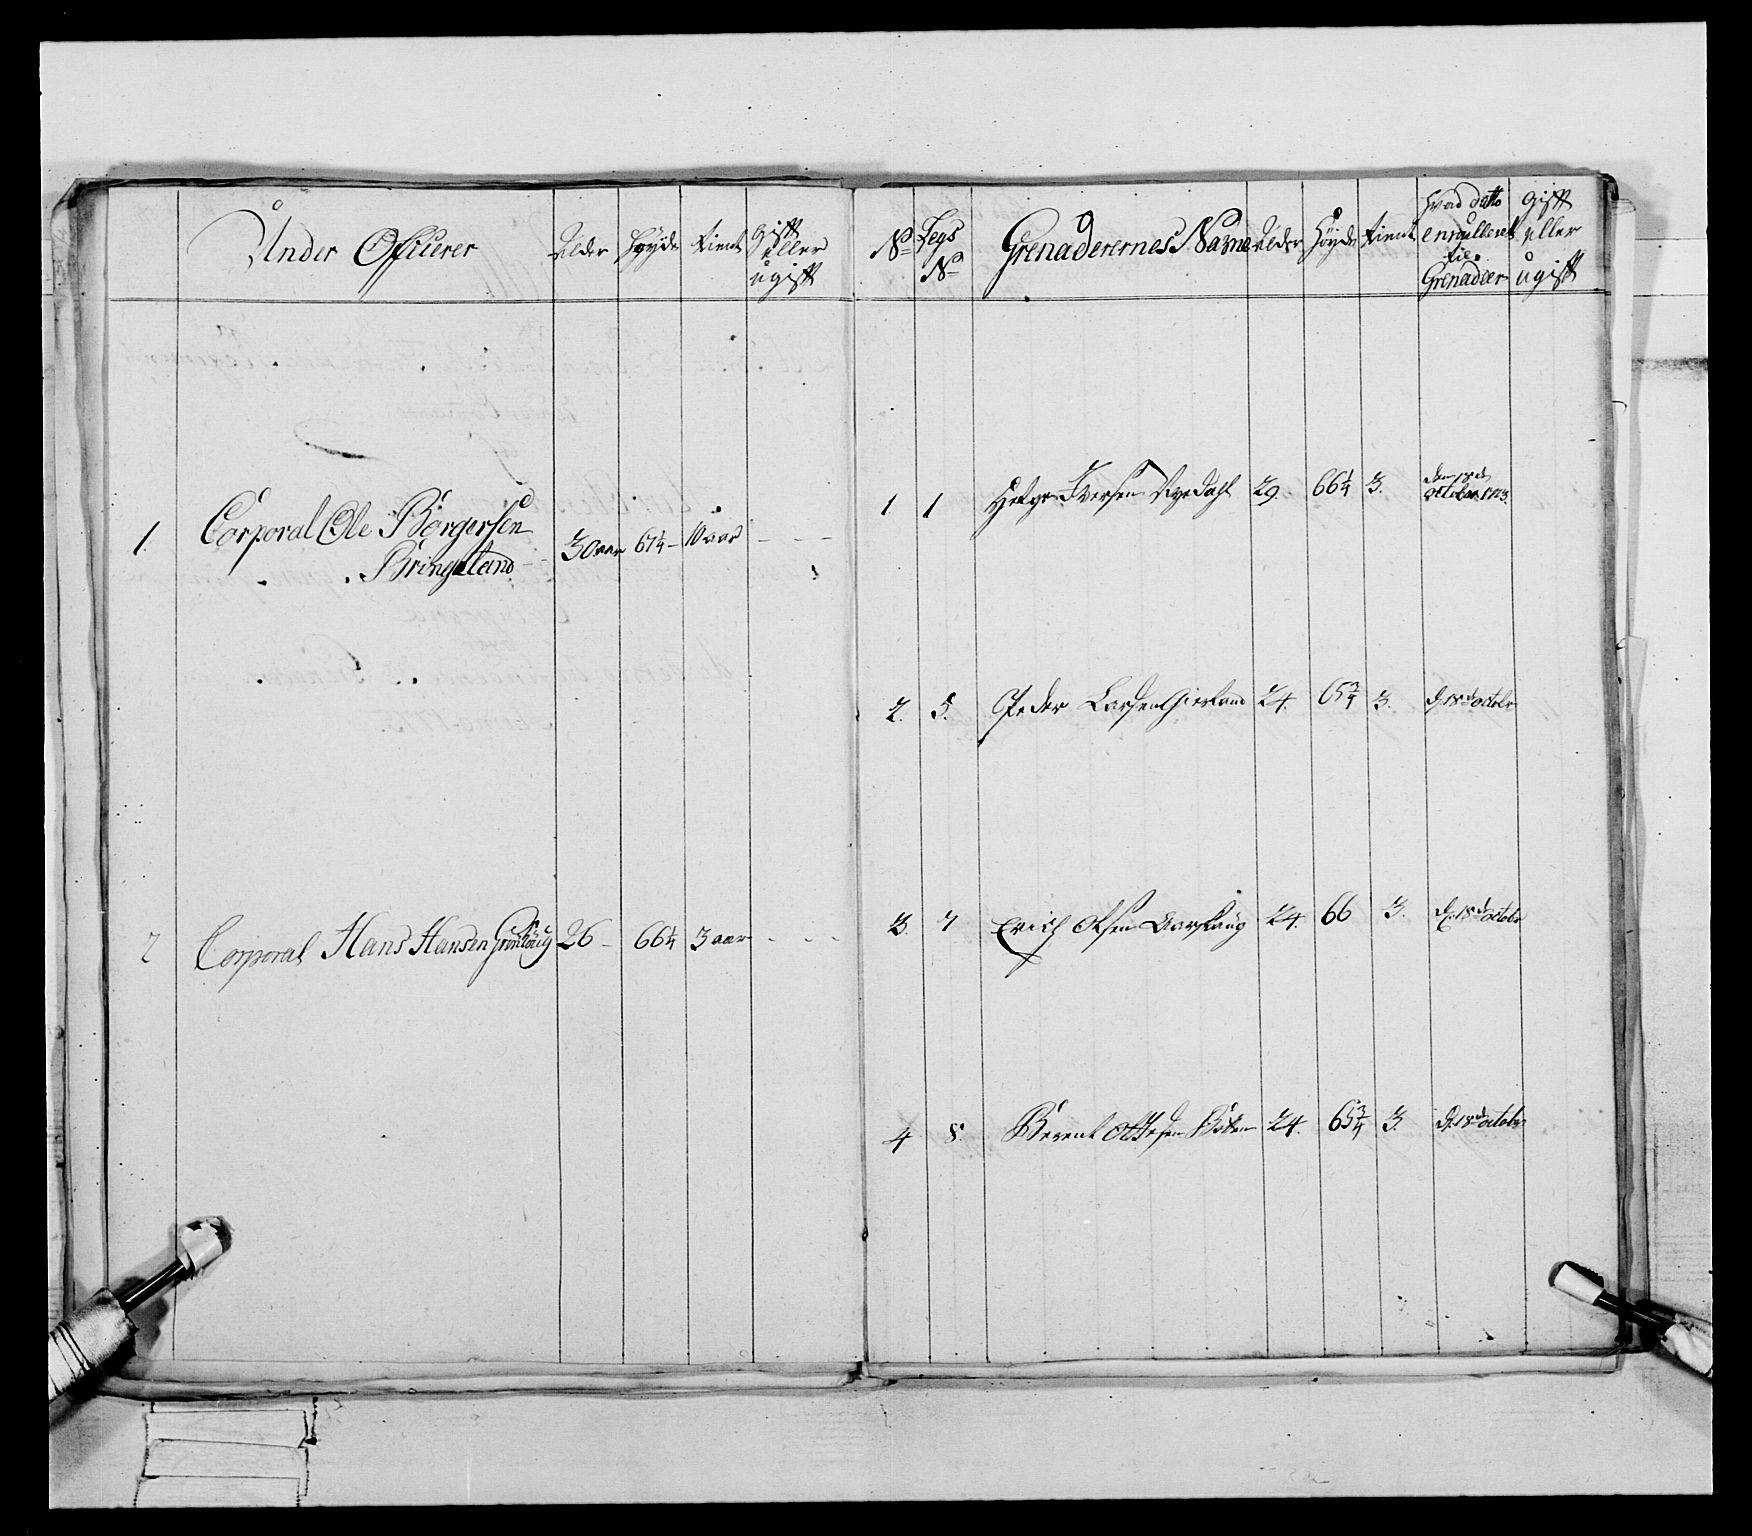 Under Officerer
Alder
Høyde
Tient
gifft
eller
ugifft
1.
Corporal Ole Børgersen
Bringeland
30 aar
67¼
10 aar
2
Corporal Hans Hansen
26
66¼
3 aar
No
Legs
No
Grenaderernes Nafne
Alder
Høyde
Tient
Hvad datto
enroulleret
til
Grenadeer
Gifft
eller
ugifft
1
1
Helge Iversen
29
66¼
3.
den 18de
October 1773.
2.
5.
Peder Larsen
24.
65¾
3.
d: 18de octobr
3.
7
Erich Olsen
24.
66
3.
d: 18de octobr
4
8
Berent Ottesen
24.
65¾
3.
d: 18de octobr